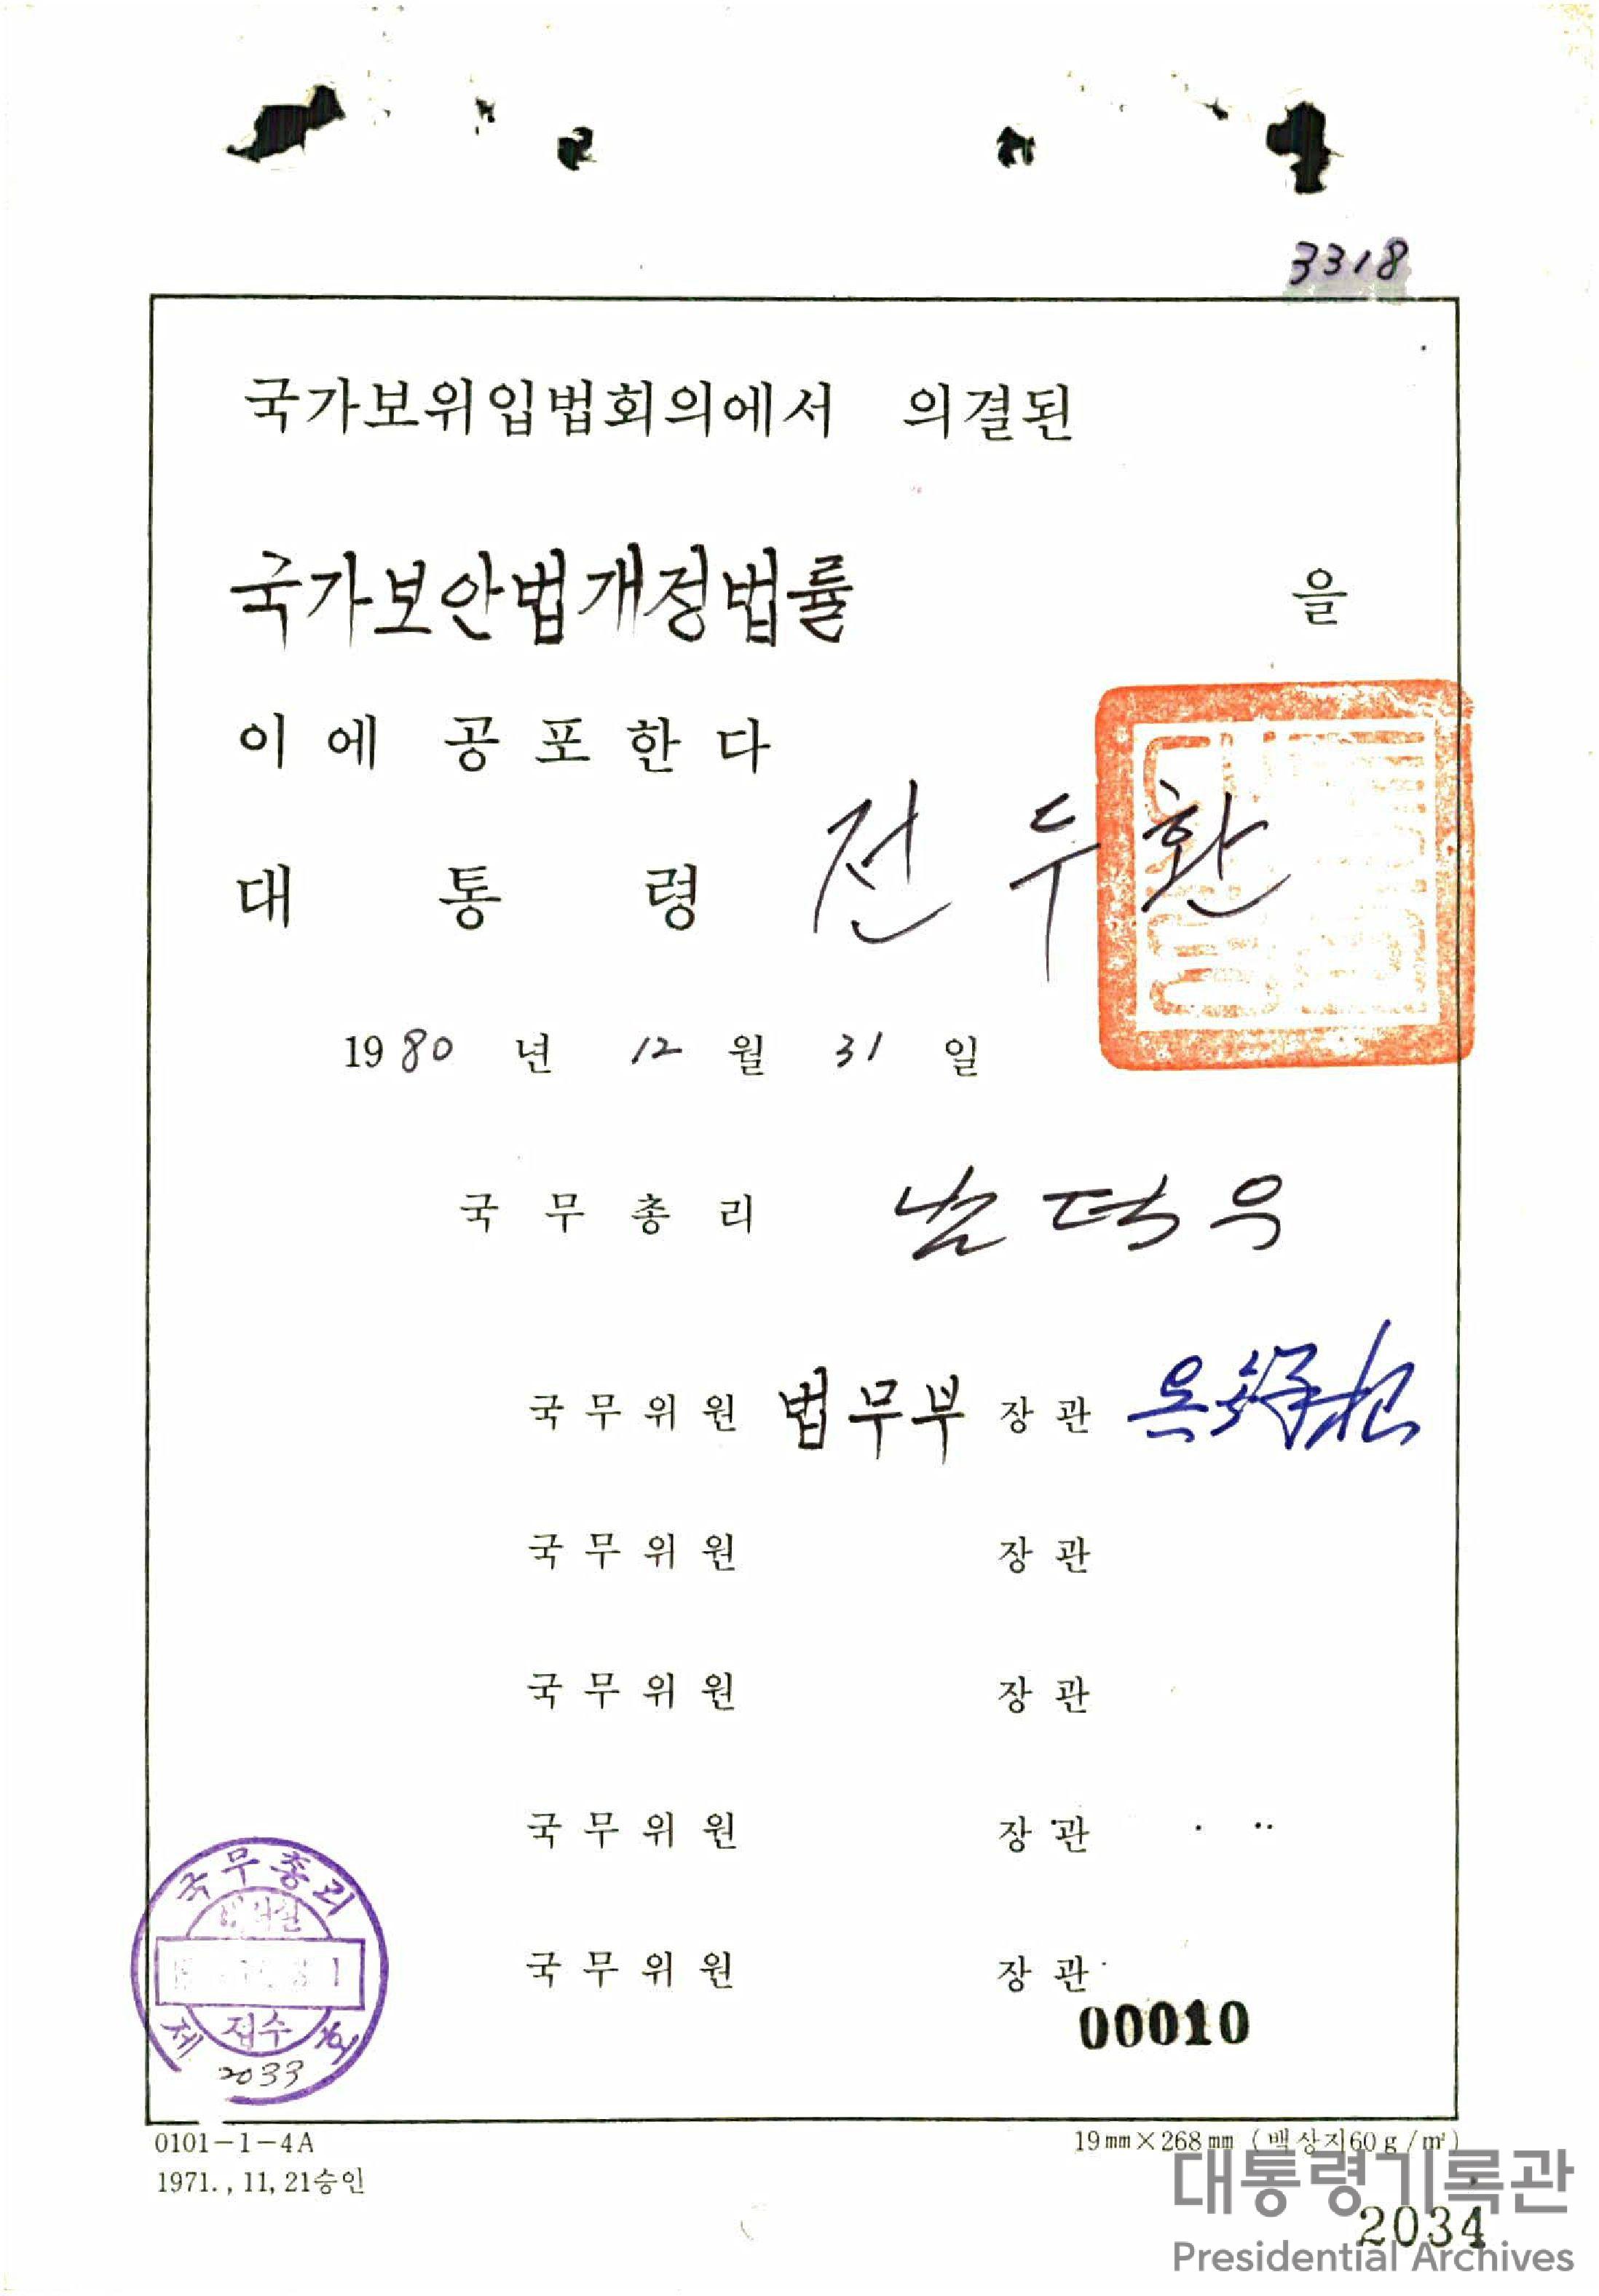 3318
국가보위입법회의에서 의결된
국가보안법개정법률 을
이에 공포한다
대통령 전두환
1980년 12월 31일
국무총리 남덕우
국무위원 법무부장관
국무위원 장관
국무위원 장관
국무위원 장관
국무위원 장관
국무총리
접수
제 호
2033
00010
0101-1-4A
1971., 11, 21승인
19㎜×268㎜ (백상지60g/㎡)
대통령기록관
2034
Presidential Archives